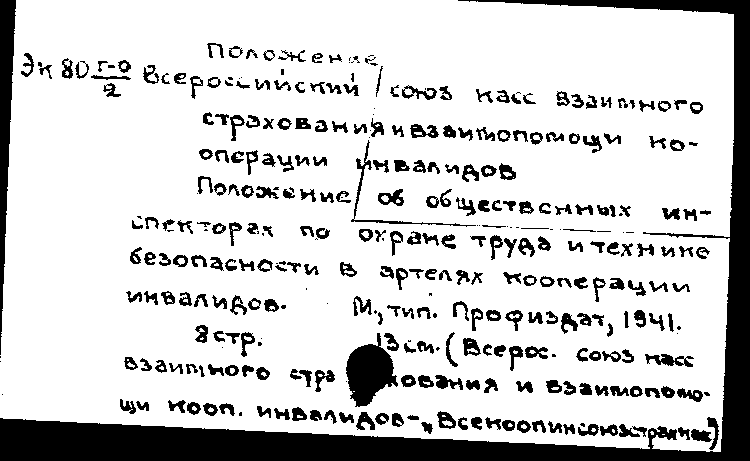 Положение
Эк 80 г-0/2 Всероссийский союз касс взаимного
страхования и взаимопомощи ко-
операции инвалидов
Положение об общественных ин-
спекторах по охране труда и технике
безопасности в артелях кооперации
инвалидов. М., тип. Профиздат, 1941.
8 стр. 13 см. (Всерос. союз касс
взаимного страхования и взаимопомо-
щи кооп. инвалидов-„Всекоопинсоюзстрахкасс")